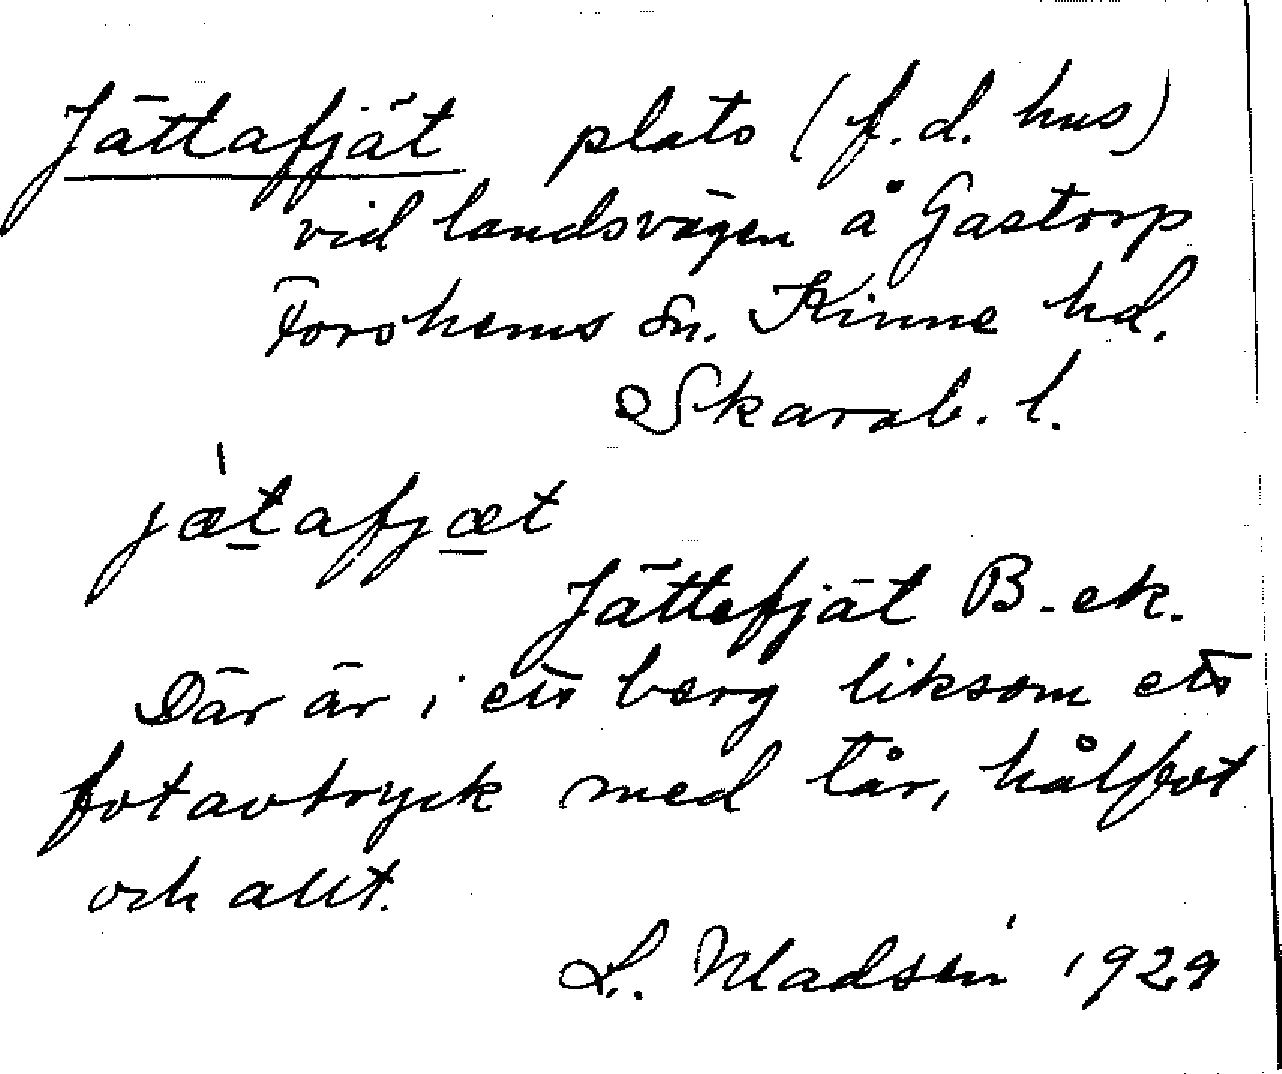 Jättafjät plats (f.d. hus)
vid landsvägen å Gastorp
Forshems sn. Kinne hd.
Skarab. l.
jætafjæt
Jättefjät B. ek.
Där är i ett berg liksom ett
fotavtryck med tår, hålfot
och allt.
L. Madsén 1929